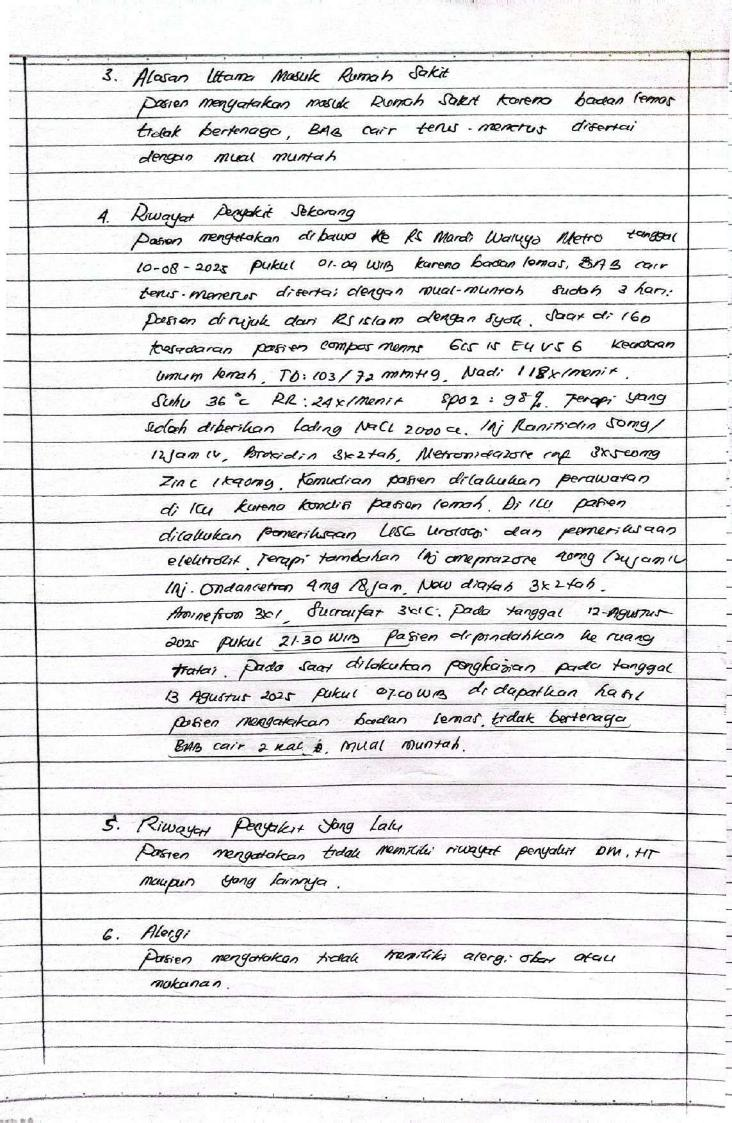 3. Alasan Utama Masuk Rumah Sakit
Pasien mengatakan masuk Rumah Sakit karena badan lemas
tidak bertenaga, BAB cair terus-menerus disertai
dengan mual muntah
4. Riwayat Penyakit Sekarang
Pasien mengatakan dibawa ke RS Mardi Waluyo Metro tanggal
10-08-2025 pukul 01.09 WIB karena badan lemas, BAB cair
terus-menerus disertai dengan mual-muntah sudah 3 hari.
Pasien dirujuk dari RS Islam dengan syok. Saat di IGD
kesadaran pasien compos mentis GCS 15 E4 V5 6 keadaan
umum lemah, TD: 103/72 mmHg, Nadi 118x/menit.
Suhu 36 °c RR: 24x/menit SpO2: 98%. Terapi yang
sudah diberikan Loding NaCL 2000 cc. Inj Ranitidin 50mg/
12 jam IV, 3x2 tab, Metronidazole 3x500mg
Zinc 1x20mg. Kemudian pasien dilakukan perawatan
di ICU karena kondisi pasien lemah. Di ICU pasien
dilakukan pemeriksaan USG Urologi dan pemeriksaan
elektrolit. Terapi tambahan Inj omeprazole 40mg /24 jam IV
Inj. Ondancetron 4mg /8 jam, New diatab 3x2 tab.
3x1, Sucraufat 3x1C. Pada tanggal 12-Agustus
2025 pukul 21.30 WIB Pasien dipindahkan ke ruang
tratai. Pada saat dilakukan pengkajian pada tanggal
13 Agustus 2025 pukul 07.00 WIB didapatkan hasil
pasien mengatakan badan lemas, tidak bertenaga
BAB cair 2 kali, mual muntah.
5. Riwayat Penyakit Yang Lalu
Pasien mengatakan tidak memiliki riwayat penyakit DM, HT
maupun yang lainnya.
6. Alergi
Pasien mengatakan tidak memiliki alergi obat atau
makanan.